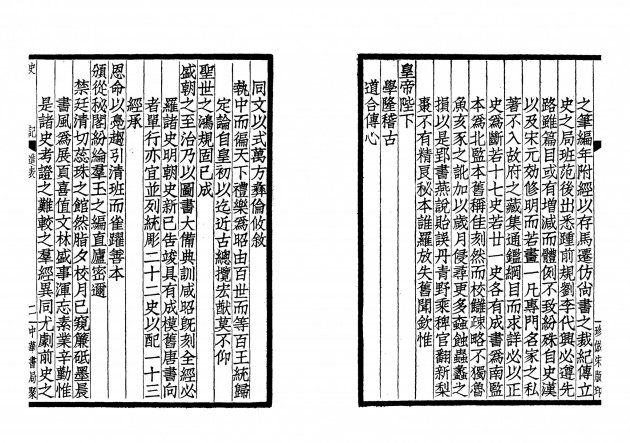 珍倣宋版印
之筆編年附經以存馬遷仿尚書之裁紀傳立
史之局班范後出悉踵前規劉李代興必遵先
路雖篇目或有增減而體例不致紛殊自史漢
以及宋元效修明而若畫一凡專門名家之私
著不入故府之藏集通鑑綱目而求詳必以正
史爲斷若十七史若廿一史各有成書爲南監
本爲北監本舊稱佳刻然而校讎疎略不獨魯
魚亥豕之訛加以歲月侵尋更多蝕之
損以是郢書燕說貽誤丹青野乘稗官翻新梨
棗不有精良秘本誰羅放失舊聞欽惟
皇帝陛下
學隆稽古
道合傳心
同文以式萬方彝倫攸敘
執中而徧天下禮樂爲昭由百世而等百王統歸
定論自皇初以迄近古總攬宏猷莫不仰
聖世之鴻規固已成
盛朝之至治乃以圖書大備典訓咸昭旣刻全經必
羅諸史明朝史新已告竣具有成模舊唐書向
者單行亦宜並列統彫二十二史以配一十三
經承
恩命以鳧趨引清班而雀躍善本
頒從秘閣紛綸羣玉之編直廬密邇
禁廷清切蕊珠之館然脂夕校月已窺簾砥墨晨
書風爲展頁喜值文林盛事渾忘素業辛勤惟
是諸史考證之難較之羣經異同尤劇前史之
史記
中華書局聚